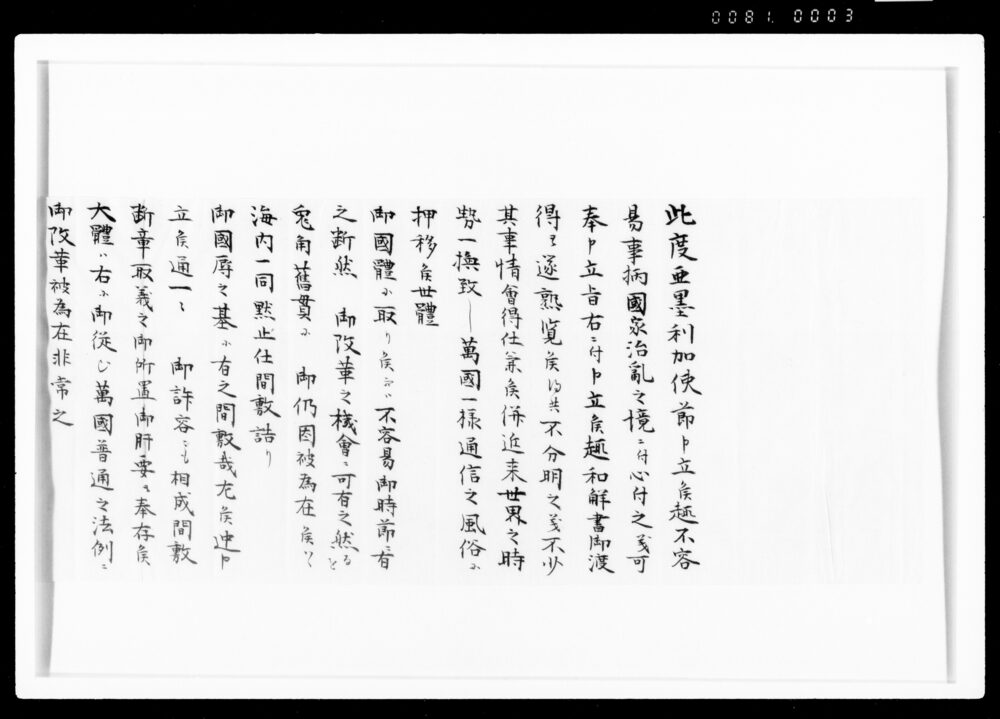 0081. 0003
此度亜墨利加使節申立候趣不容
易事柄國家治亂之境ニ付心付之義可
奉申立旨右ニ付申立候趣和解書御渡
得と遂熟覧候得共不分明之義不少
其事情會得仕兼候併近来世界之時
勢一換致し萬國一様通信之風俗ニ
押移候世體
御國體ニ取り候而ハ不容易御時節ニ有
之断然 御改革之機會ニ可有之然ると
兎角舊貫ニ 御仍因被為在候ハヽ
海内一同黙止仕間敷詰り
御國辱之基ニ有之間敷哉尤候迚申
立候通一々 御許容ニも相成間敷
断章取義之御所置御肝要ニ奉存候
大體ハ右ニ御従ひ萬國普通之法例ニ
御改革被為在非常之